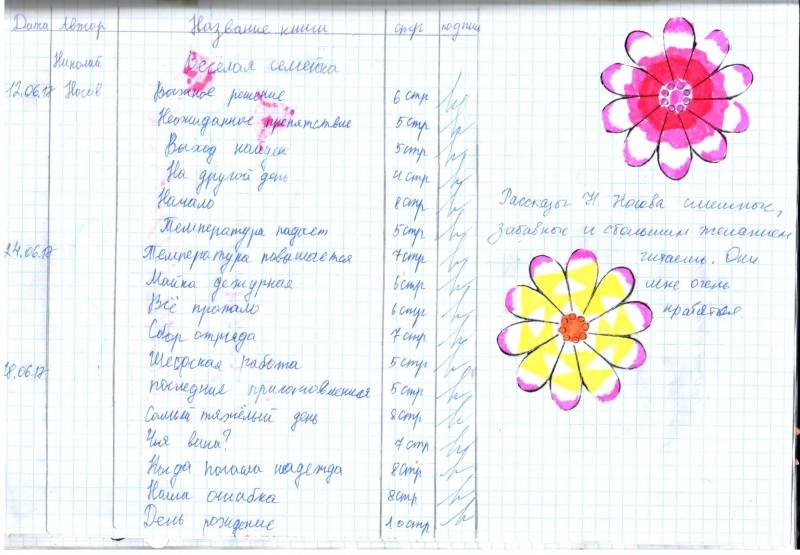 Дата Автор Название книги стр подпись
Николай Весёлая семейка
12.06.17 Носов Важное решение 6 стр
Неожиданное препятствие 5 стр
Выход найден 5 стр
На другой день 4 стр
Начало 8 стр
Температура падает 5 стр
24.06.17 Температура повышается 7 стр
Майка дежурная 6 стр
Всё пропало 6 стр
Сбор отряда 7 стр
28.06.17 Шефская работа 5 стр
Последние приготовления 5 стр
Самый тяжёлый день 8 стр
Чья вина? 7 стр
Когда погасла надежда 8 стр
Наша ошибка 8 стр
День рождение 10 стр
Рассказы Н Носова смешные,
забавные и с большим желанием
читаешь. Они
мне очень
нравятся